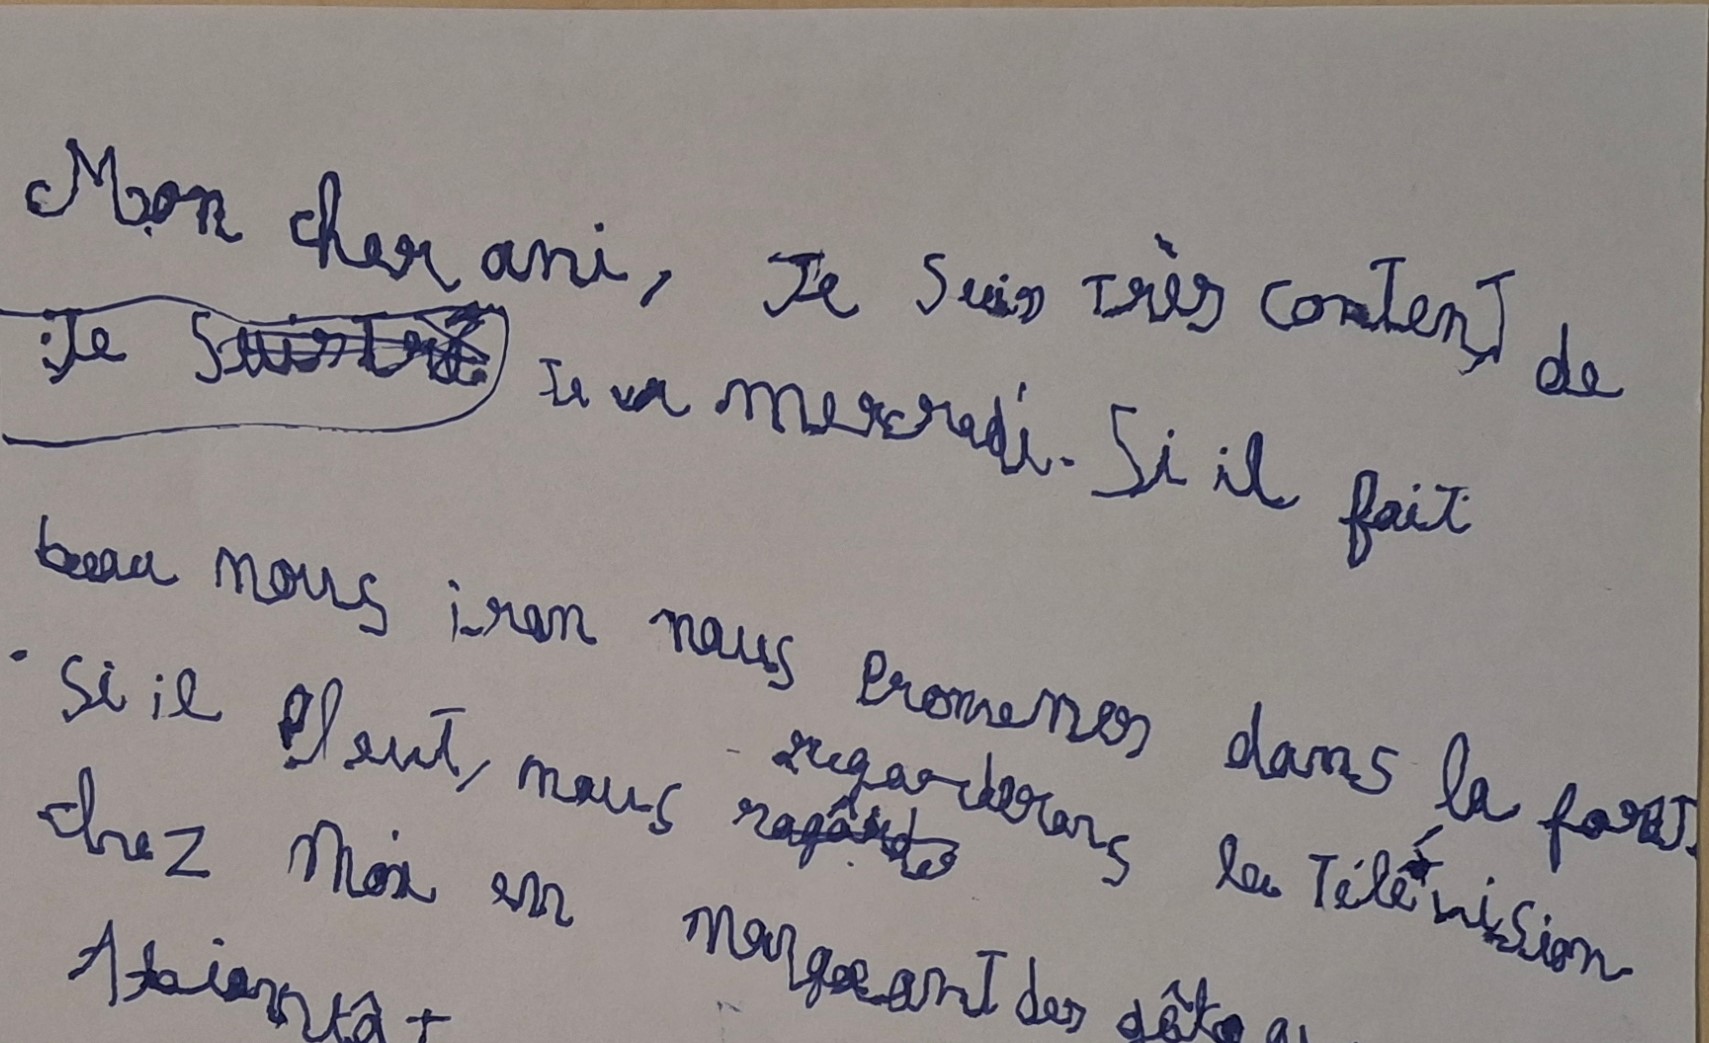 Mon cher ami, Je suis très content de
Je suis très te va mercredi. Si il fait
beau nous iron nous promener dans la foret.
Si il pleut, nous regarderons la télévision
chez moi en mangeant des gâteau
A bientôt